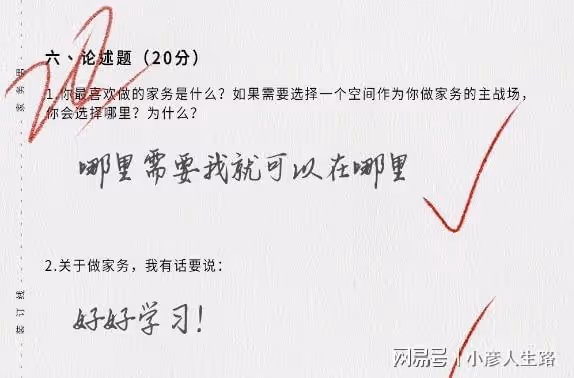 六、论述题（20分）
1.你最喜欢做的家务是什么？如果需要选择一个空间作为你做家务的主战场，
你会选择哪里？为什么？
哪里需要我就可以在哪里
2.关于做家务，我有话要说：
好好学习！
装订线
网易号 | 小彦人生路